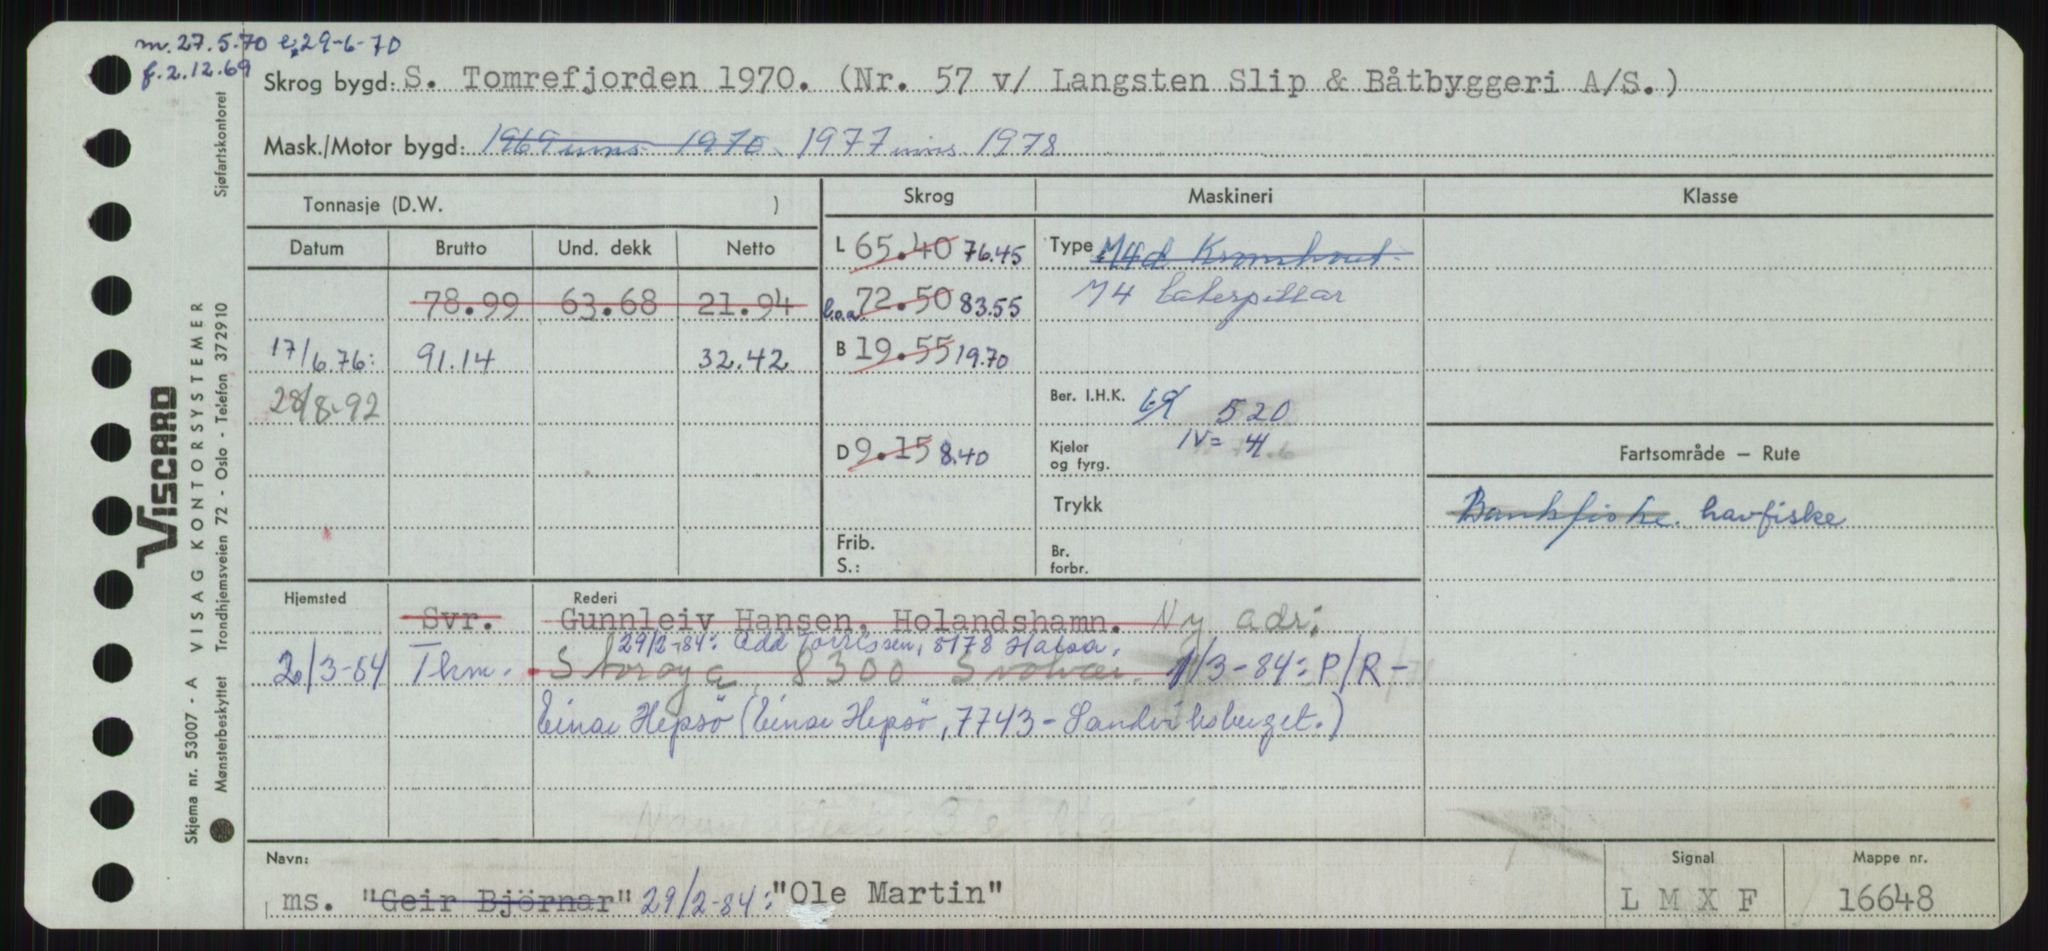 m. 27.5.70 e. 29-6-70
f. 2.12.69
Skrog bygd: S. Tomrefjorden 1970. (Nr. 57 v/ Langsten Slip & Båtbyggeri A/S.)
Mask./Motor bygd: 1969 inns 1970. 1977 inns. 1978
Tonnasje (D.W. )
Skrog Maskineri Klasse
Datum Brutto Und. dekk Netto
L 65.40 76.45 Type M4d Kromhout
78.99 63.68 21.94
l.o.a. 72.50 83.55 M4 Caterpillar
17/6.76: 91.14 32.42
B 19.55 19.70
28/8-92
Ber. I.H.K. 69 520
IV= 4
D 9.15 8.40 Kjeler og fyrg.
Fartsområde — Rute
Trykk
Bankfiske. havfiske
Frib.
S.:
Br. forbr.
Hjemsted Rederi
Svr. Gunnleiv Hansen, Holandshamn. Ny adr:
29/2-84: Odd Torrissen, 8178 Halsa.
20/3-84 Tkm. Storøya, 8300 Svolvær. 1/3-84: P/R -
Einar Hepsö (Einar Hepsö, 7743 - Sandviksberget.)
Navn: Signal Mappe nr.
ms. "Geir Björnar" 29/2-84: "Ole Martin" L M X F 16648
VISCARD
Skjema nr. 53007 - A VISAG KONTORSYSTEMER Sjøfartskontoret
Mønsterbeskyttet Trondhjemsveien 72 - Oslo - Telefon 372910